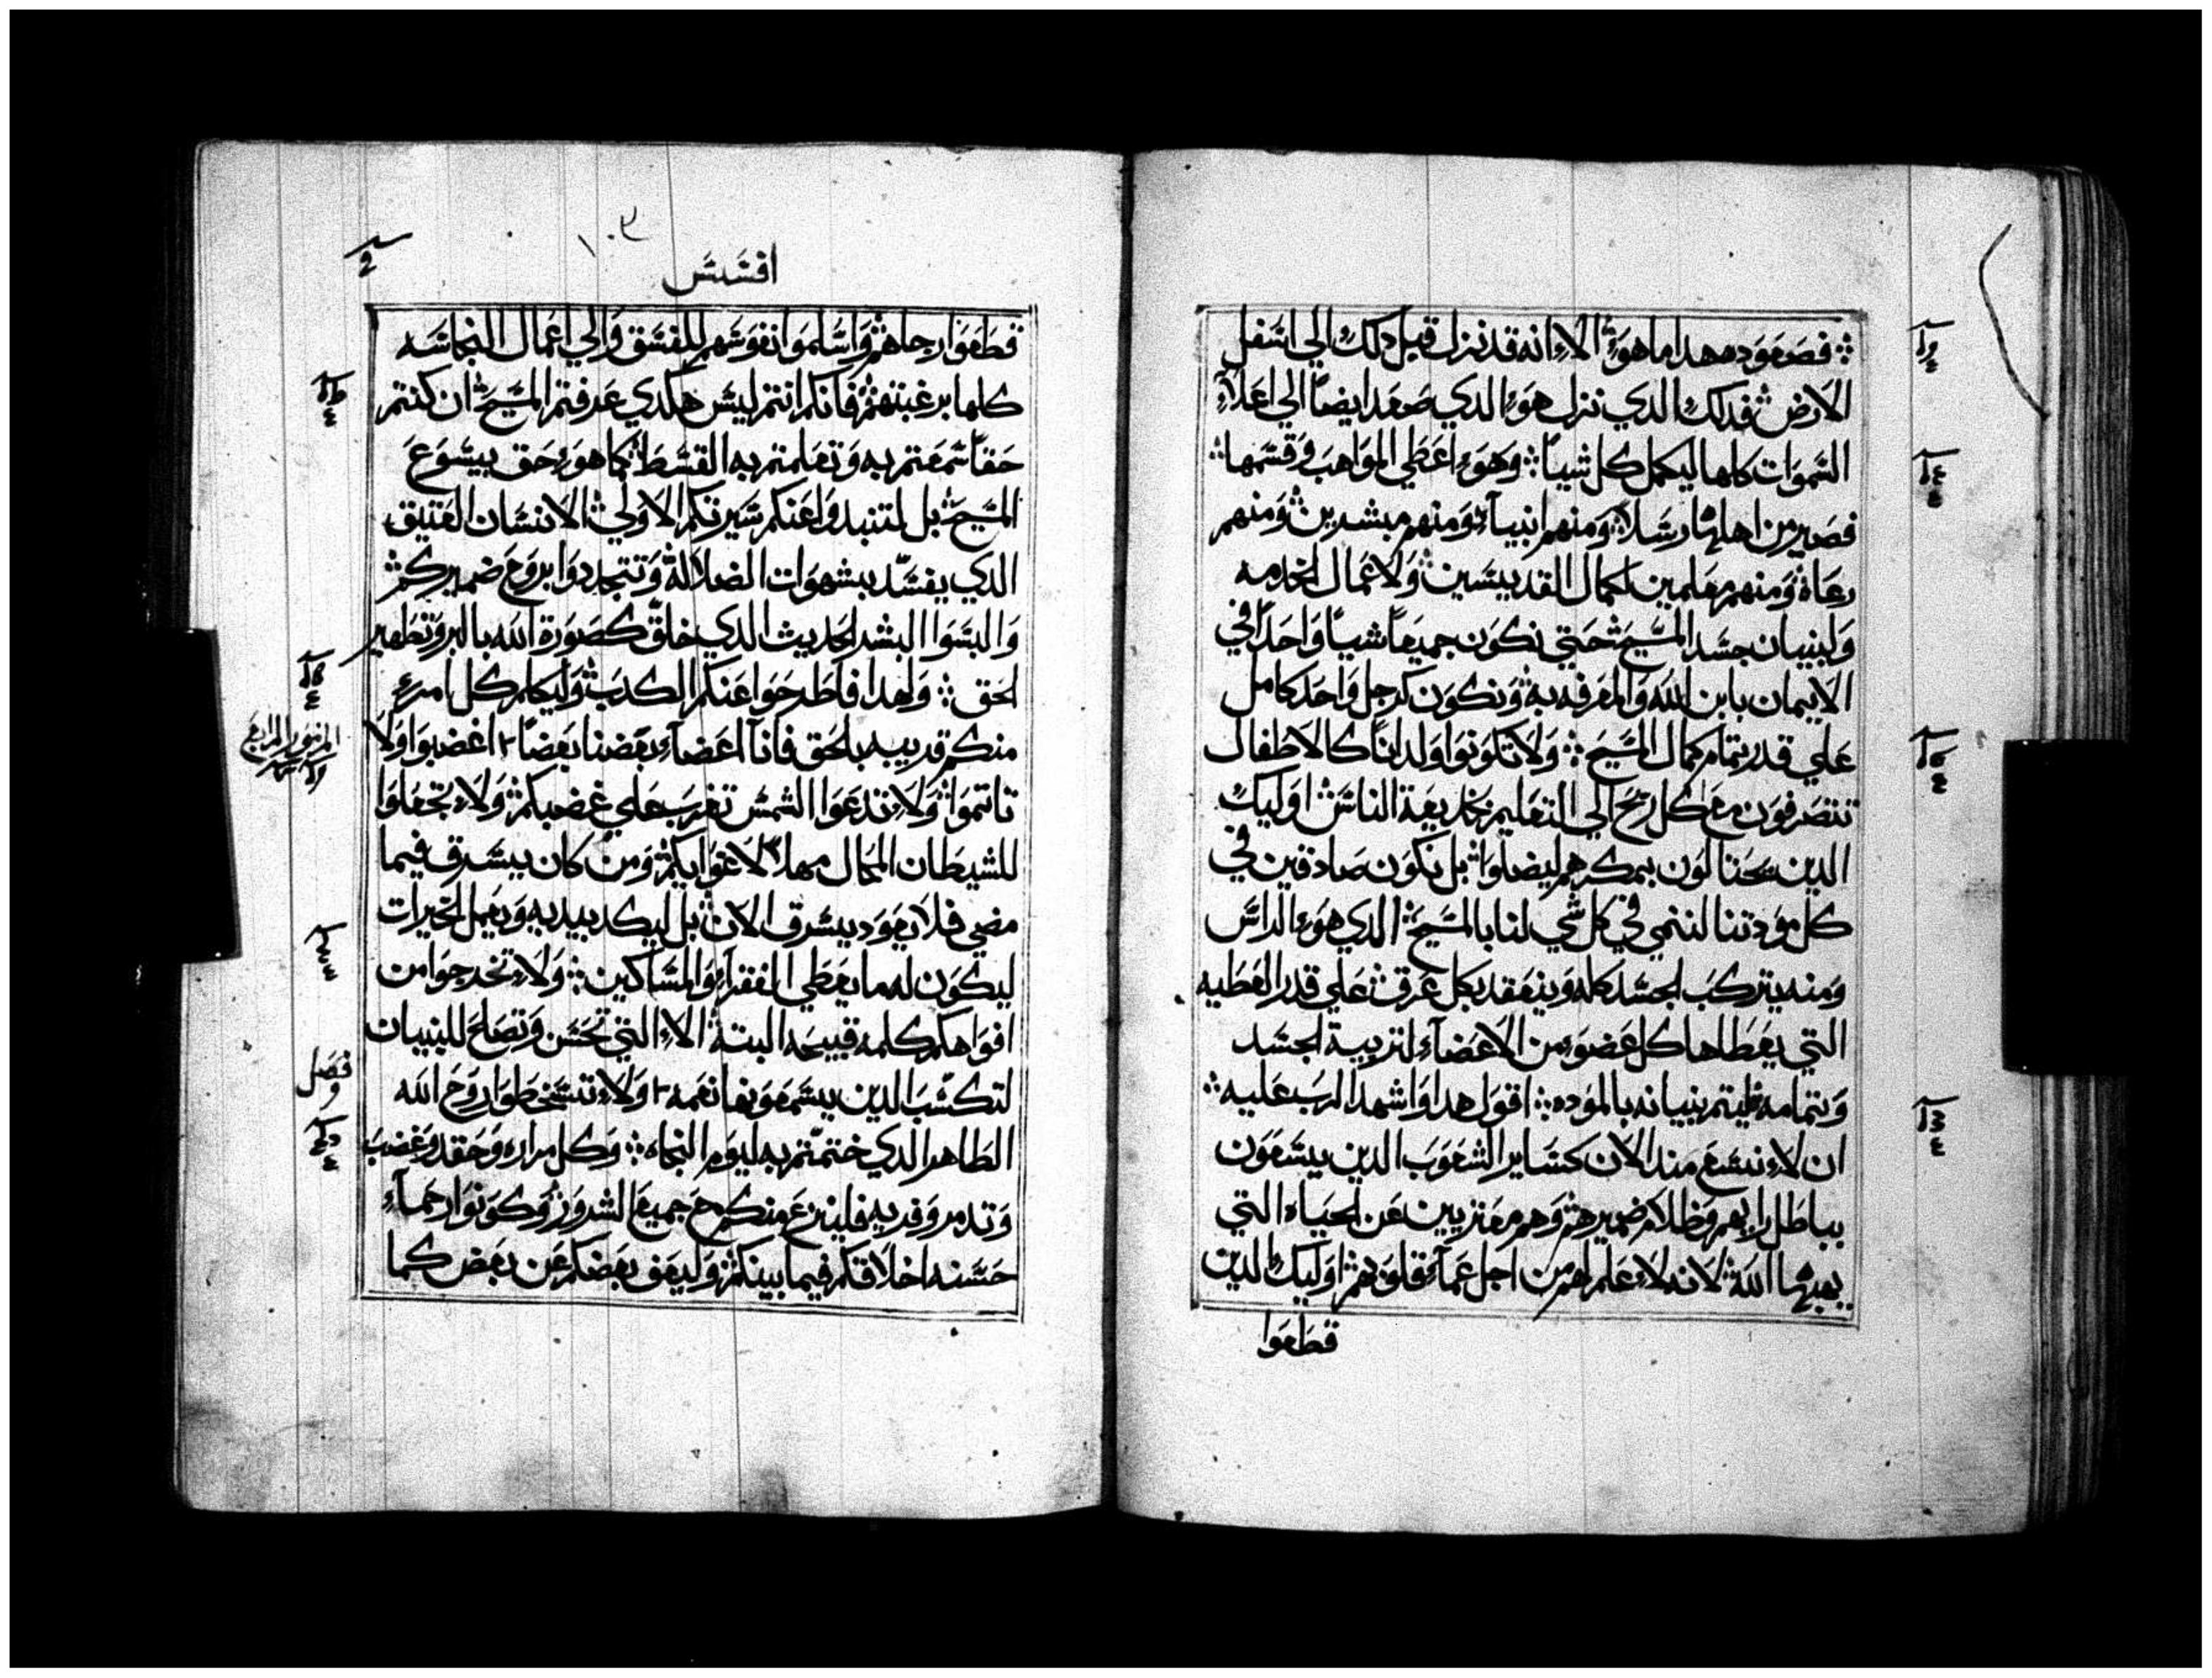 فصعوده هدا ما هوء الاء انه قد نزل قبل دلك الي اسفل
الارض فدلك الدي نزل هوء الدي صعد ايضاً الي اعلاء
السموات كلها ليكمل كل شياً وهوء اعطي المواهب وقسمها
فصير من اهلها رسلاً ومنهم انبياء ومنهم مبشرين ومنهم
رعاة ومنهم معلمين لكمال القديسين ولاعمال الخدمه
ولبنيان جسد المسيح حتي نكون جميعاً شياً واحداً في
الايمان بابن الله والمعرفه به ونكون كرجل واحد كامل
علي قدر تمام كمال المسيح ولا تكونوا ولداناً كالاطفال
تتصرفون مع كل ريح الي التعليم بخديعة الناس اوليك
الدين يحتالون بمكرهم ليضلوا بل نكون صادقين في
كل مودتنا لننمي في كل شي لنا بالمسيح الدي هوء الراس
ومنه يتركب الجسد كله ويتعقد بكل عرق علي قدر العطيه
التي يعطاها كل عضوء من الاعضاء لتربية الجسد
وتمامه ليتم بنيانه بالموده اقول هدا واشهد الرب عليه
ان لاء نسع مند الان كساير الشعوب الدين يسعون
بباطل رايهم وظلام ضميرهم وهم معتزيين عن الحياه التي
يهبها الله لانه لاء علم لهم من اجل عماء قلوبهم اوليك الدين
قطعوا
١٠٣
افسس
قطعوا رجاهم واسلموا نفوسهم للفسق والي اعمال النجاسه
كلها برغبتهم فانكم انتم ليس هكدي عرفتم المسيح ان كنتم
حقاً سمعتم به وتعلمتم به القسط كما هوء حق بيسوع
المسيح بل لتنبدوا عنكم سيرتكم الاولي الانسان العتيق
الدي يفسد بشهوات الضلاله وتتجددوا بروح ضميركم
والبسوا البشر الحديث الدي خلق كصورة الله بالبر وتطهير
الحق ولهدا فاطرحوا عنكم الكدب وليكلم كل امرء
منكم قريبه بالحق فانا اعضاء بعضنا بعضاً اغضبوا ولا
تاتموا ولاء تدعوا الشمس تغرب علي غضبكم ولاء تجعلوا
للشيطان المحال مهلاً لاغوايكم ومن كان يسرق فيما
مضي فلا يعود يسرق الان بل ليكد بيديه ويعمل الخيرات
ليكون له ما يعطي الفقراء والمساكين ولاء تخرجوا من
افواهكم كلمه قبيحه البته الاء التي تحسن وتصلح للبنيان
لتكسب الدين يسمعونها نعمه ولاء تسخطوا روح الله
الطاهر الدي ختمتم به ليوم النجاه وكل مراره وحقد وغضب
وتدمر وفريه فلينزع منكم مع جميع الشرور وكونوا رحماء
حسنه اخلاقكم فيما بينكم وليعف بعضكم عن بعض كما
فصل